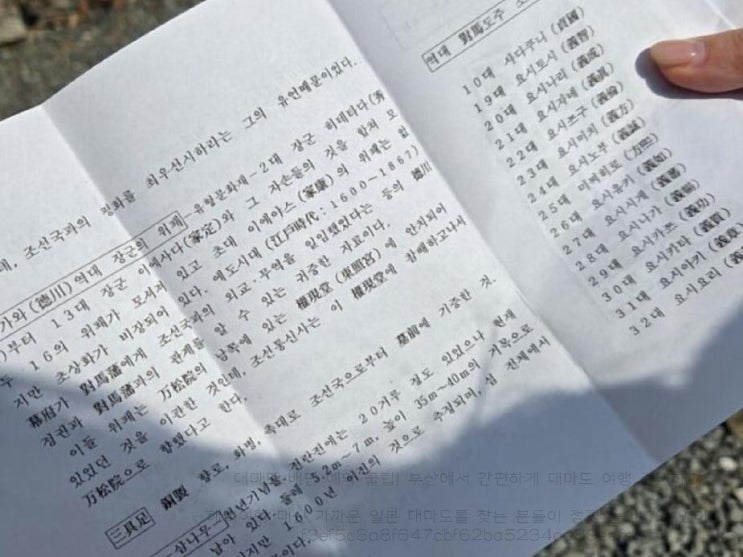 데, 조선국과의 평화를 최우선시하라는 그의 유언때문이었다.
가와(德川) 역대 장군의 위패-유형문화재-2대 장군 히데타다(秀
부터 13대 장군 이에사다(家定)와 그 자손들의 것을 합쳐 모
두 16의 위패가 모셔져 있고 초대 이에야스(家康)의 위패는 없
지만 초상화가 비장되어 있다. 에도시대(江戶時代:1600~1867)
幕府가 對馬藩에게 조선국의 외교·무역을 일임했었다는 등의 德川
정권과 對馬藩과의 관계를 알 수 있는 귀중한 자료이다.
이들 위패는 万松院의 남쪽에 있는 權現堂(東照宮)에 안치되어
있었던 것을 이관한 것인데, 조선통신사는 이 權現堂에 참배하고나서
万松院으로 향했다고 한다.
三具足 銅製 향로, 화병, 촉대로 조선국으로부터 幕府에 기증한 것.
삼나무
역대 對馬島主
10대 사다쿠니(貞國)
19대 요시토시(義智)
20대 요시나리(義成)
21대 요시자네(義眞)
22대 요시츠구(義倫)
23대 요시미치(義方)
24대 요시노부(義誠)
25대 미치히로(方熙)
26대 요시유키(義如)
27대 요시시게(義蕃)
28대 요시나가(義暢)
29대 요시카츠(義功)
30대 요시카타(義質)
31대 요시아키
32대 요시요리
대마도 배편 예약 꿀팁! 부산에서 간편하게 대마도 여행
가까운 일본 대마도를 찾는 분들이